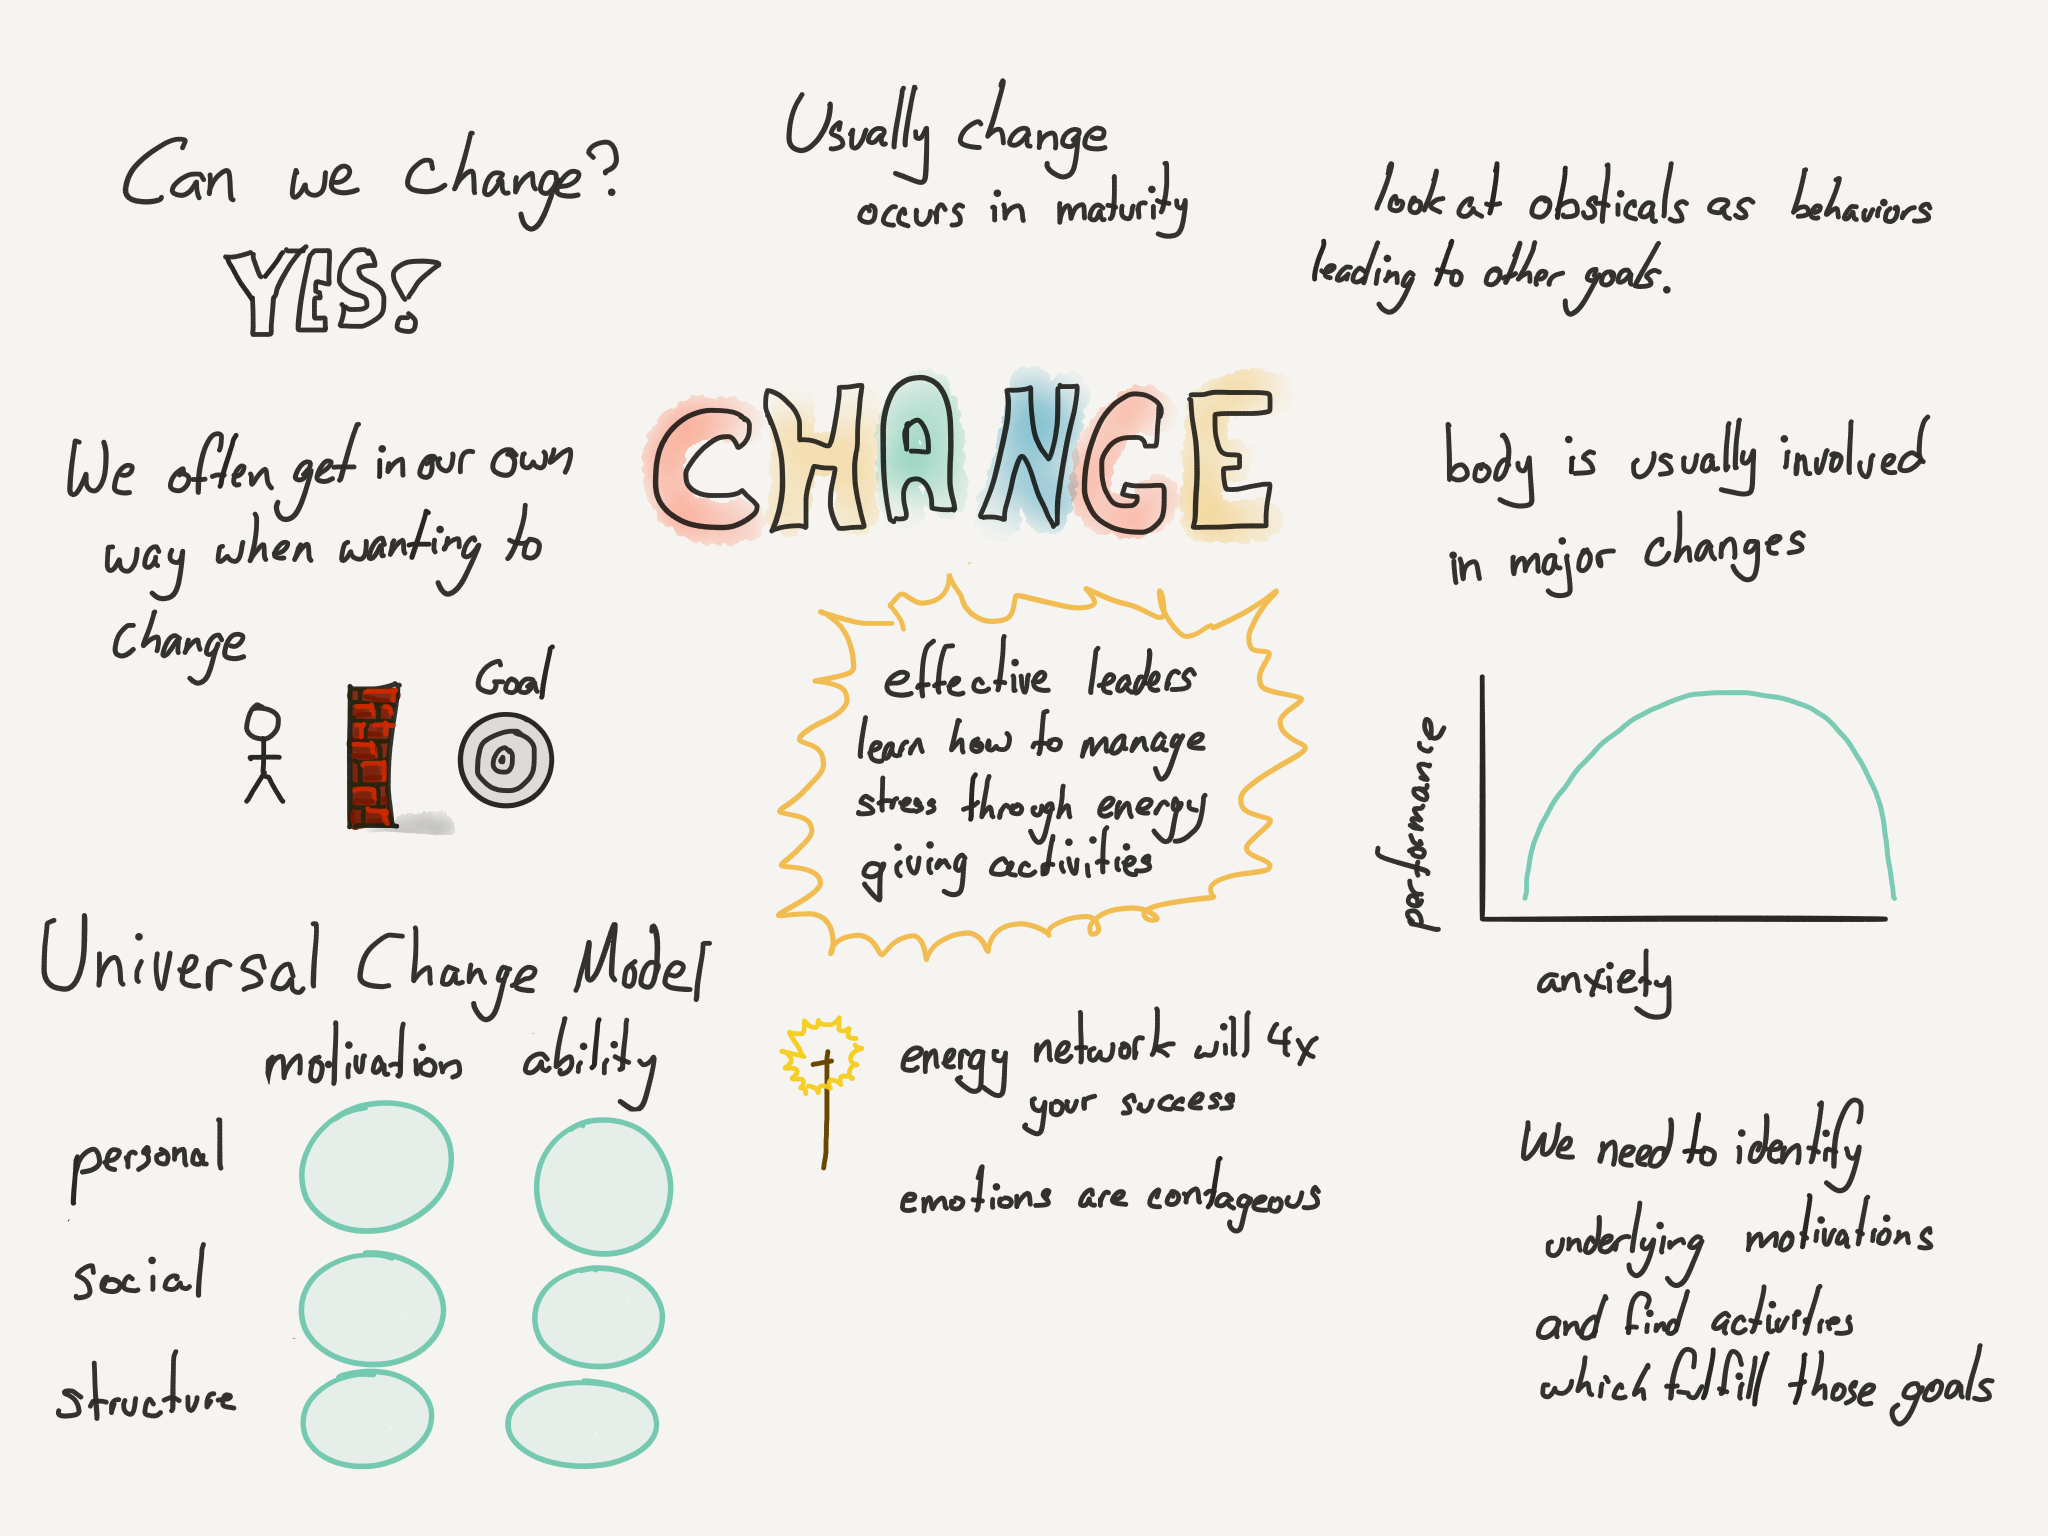 Can we change?
YES!
Usually change
occurs in maturity
look at obsticals as behaviors
leading to other goals.
CHANGE
We often get in our own
way when wanting to
change
Goal
body is usually involved
in major changes
effective leaders
learn how to manage
stress through energy
giving activities
performance
anxiety
Universal Change Model
motivation ability
personal
social
structure
energy network will 4x
your success
emotions are contageous
We need to identify
underlying motivations
and find activities
which fulfill those goals